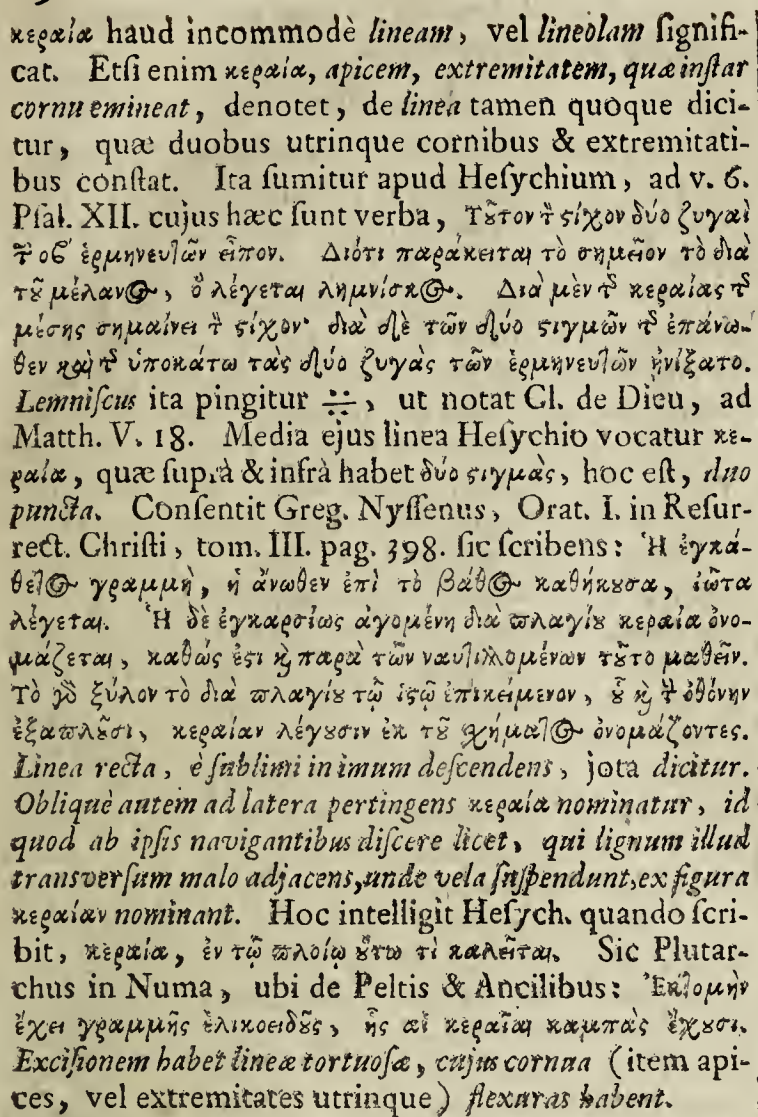 κεραία haud incommodè lineam, vel lineolam ſignifi-
cat. Etſi enim κεραία, apicem, extremitatem, quæ inſtar
cornu emineat, denotet, de linea tamen quoque dici-
tur, quæ duobus utrinque cornibus & extremitati-
bus conſtat. Ita ſumitur apud Heſychium, ad v. 6.
Pſal. XII. cujus hæc ſunt verba, Τȣ̃τον ϯ ϛίχον δύο ζυγαὶ
τ̃ οϐʹ ἑρμηνευτῶν εἶπον. Διότι παράκειται τὸ σημεῖον τὸ διὰ
τȣ̃ μέλανος, ὃ λέγεται λημνίσκος. Διὰ μὲν τ̃ κεραίας τ̃
μέσης σημαίνει ϯ ϛίχον· διὰ δὲ τῶν δύο ϛιγμῶν τ̃ ἐπάνω-
θεν καὶ τ̃ ὑποκάτω τὰς δύο ζυγὰς τῶν ἑρμηνευτῶν ᾐνίξατο.
Lemniſcus ita pingitur ⁓̣̇, ut notat Cl. de Dieu, ad
Matth. V. 18. Media ejus linea Heſychio vocatur κε-
ραία, quæ ſuprà & infrà habet δύο ϛιγμὰς, hoc eſt, duo
puncta. Conſentit Greg. Nyſſenus, Orat. I. in Reſur-
rect. Chriſti, tom. III. pag. 398. ſic ſcribens: Ἡ ἐγκά-
θετος γραμμὴ, ἡ ἄνωθεν ἐπὶ τὸ βάθος καθήκȣσα, ἰῶτα
λέγεται. Ἡ δὲ ἐγκαρσίως ἀγομένη διὰ πλαγίȣ κεραία ὀνο-
μάζεται, καθώς ἐϛι ϗ παρὰ τῶν ναυτιλλομένων τȣ̃το μαθεῖν.
Τὸ γὸ ξύλον τὸ διὰ πλαγίȣ τῷ ἱϛῷ ἐπικείμενον, ȣ̃ ϗ ϯ ὀθόνην
ἐξαπλȣ̃σι, κεραίαν λέγȣσιν ἐκ τȣ̃ χήματος ὀνομάζοντες.
Linea recta, è ſublimi in imum deſcendens, jota dicitur.
Obliquè autem ad latera pertingens κεραία nominatur, id
quod ab ipſis navigantibus diſcere licet, qui lignum illud
transverſum malo adjacens, unde vela ſuſpendunt, ex figura
κεραίαν nominant. Hoc intelligit Heſych. quando ſcri-
bit, κεραία, ἐν τῷ πλοίῳ ȣ̔́τω τὶ καλεῖται. Sic Plutar-
chus in Numa, ubi de Peltis & Ancilibus: Ἐκτομὴν
ἔχει γραμμῆς ἑλικοειδȣ̃ς, ἧς αἱ κεραῖαι καμπὰς ἔχȣσι.
Exciſionem habet lineæ tortuoſæ, cujus cornua (item api-
ces, vel extremitates utrinque) flexuras habent.